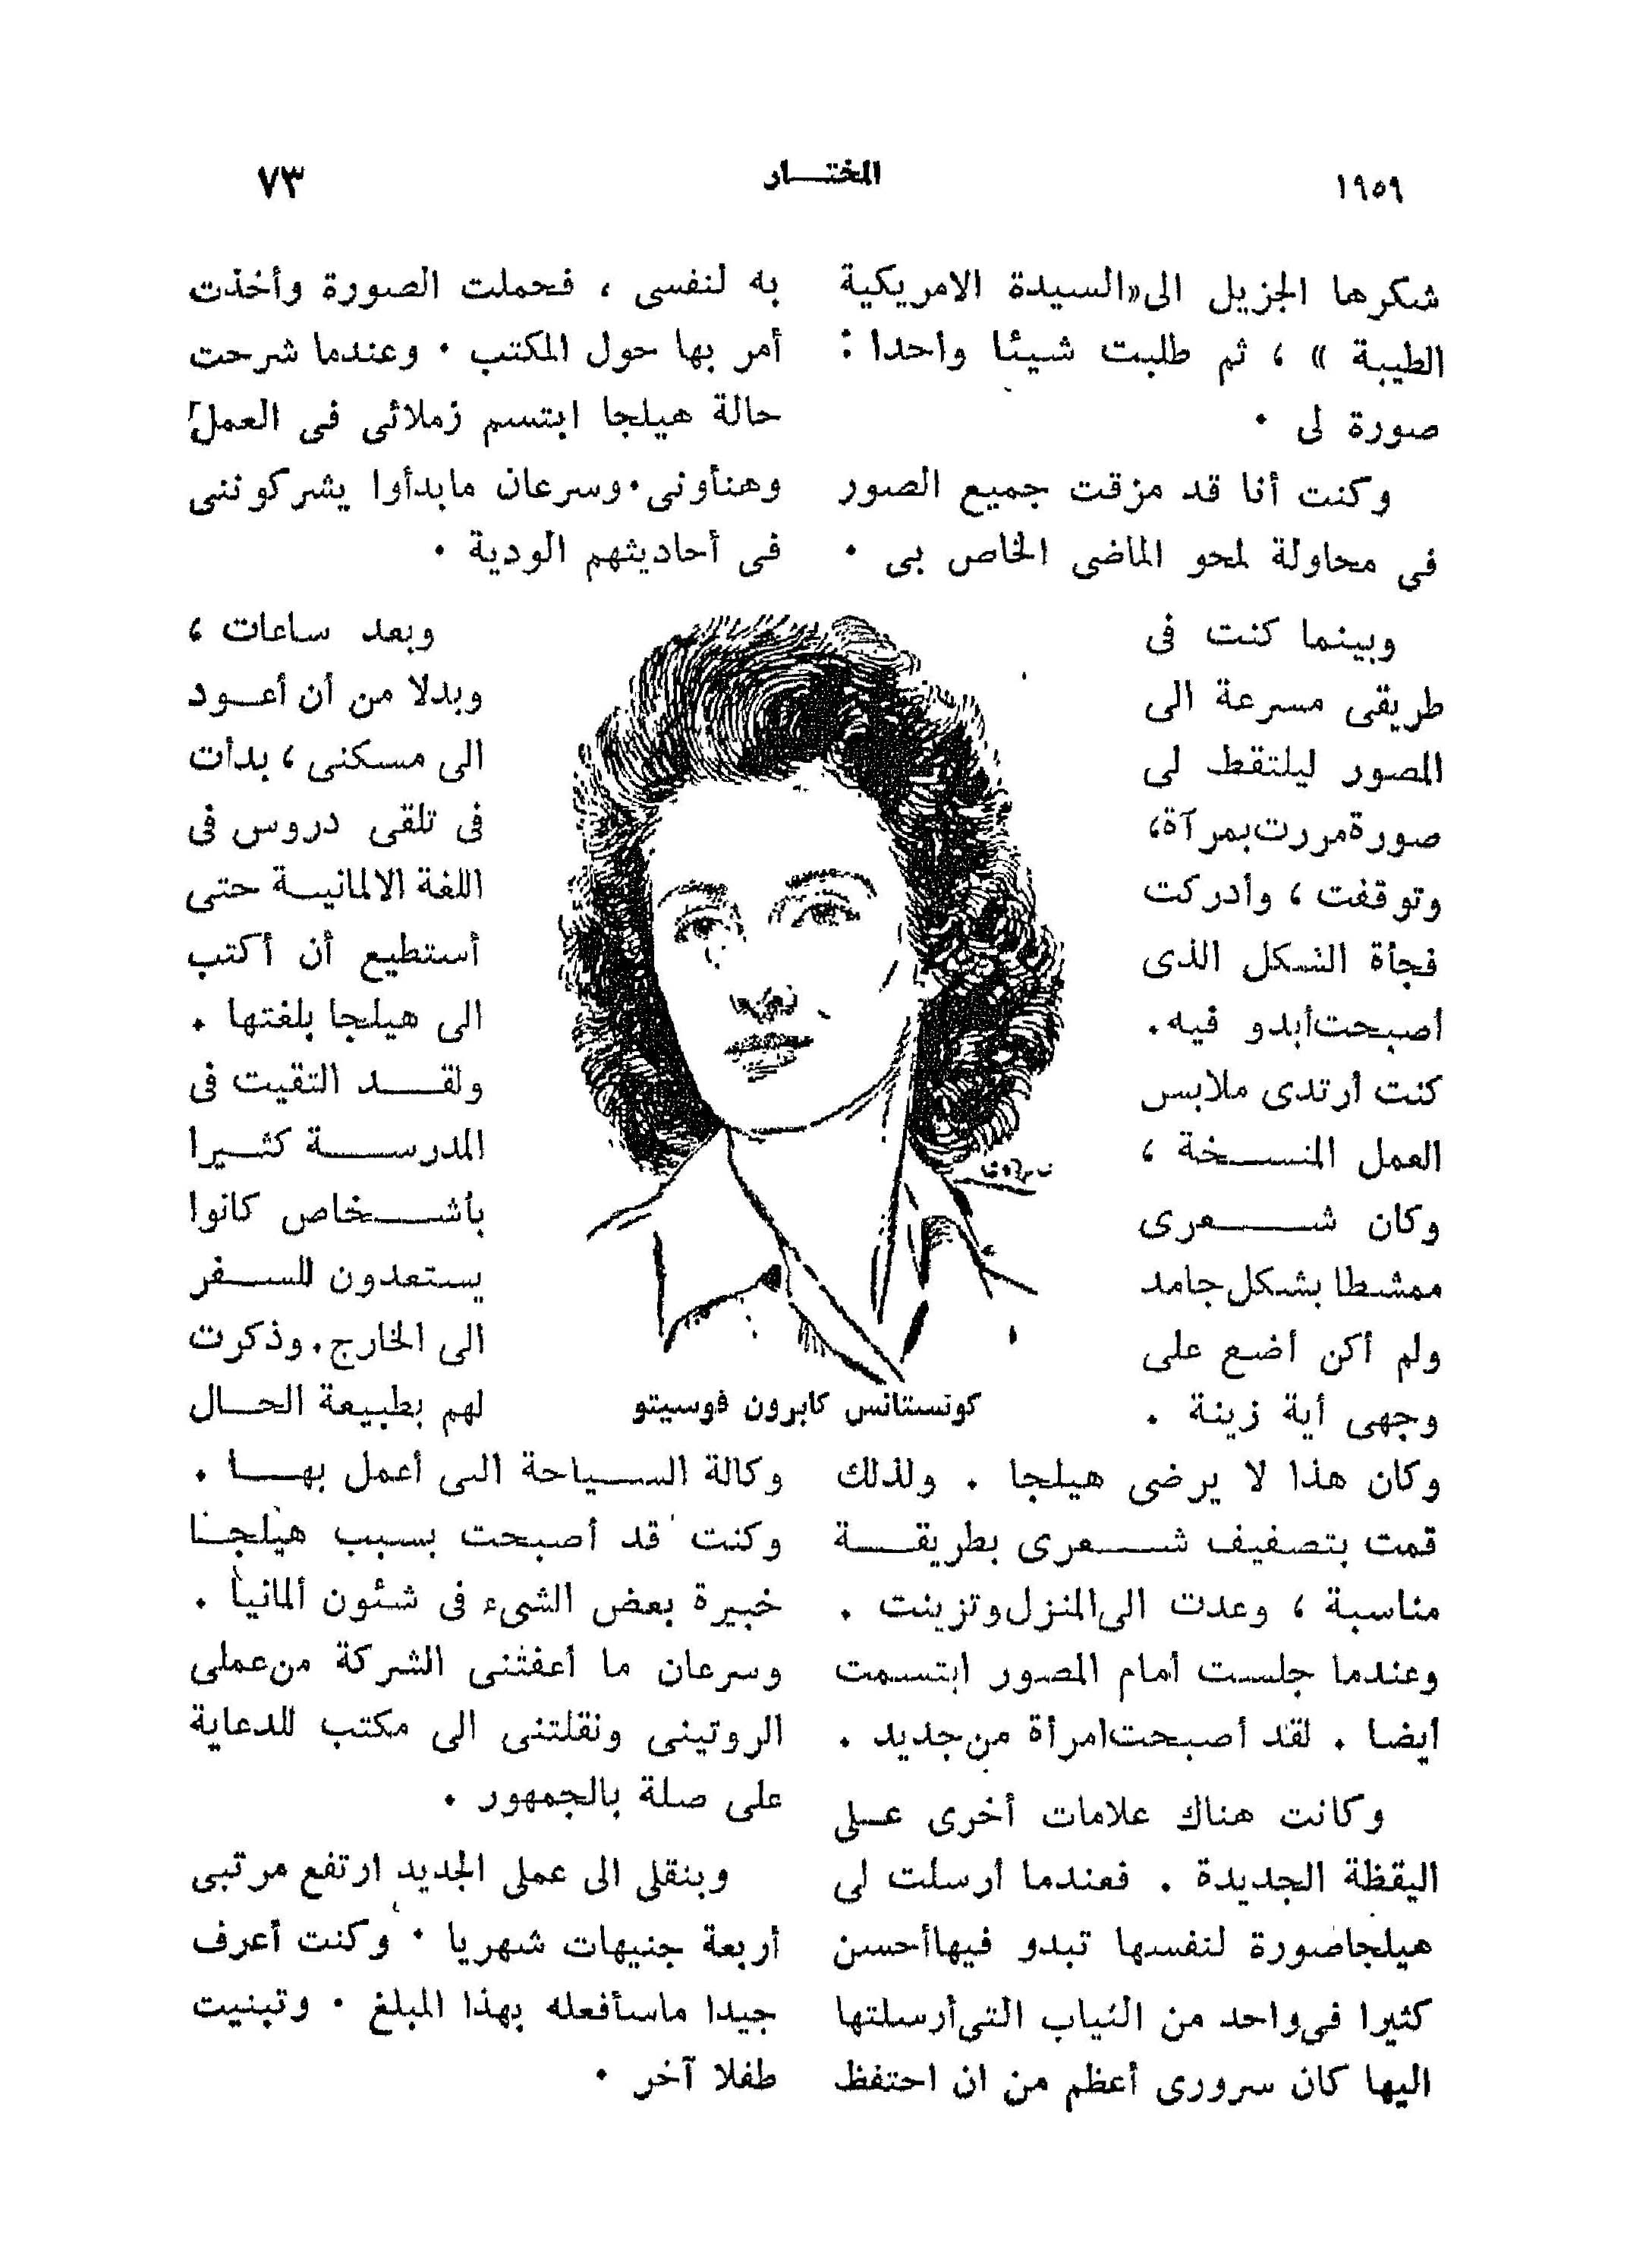 ١٩٥٩
المختار
٧٣
شكرها الجزيل الى «السيدة الامريكية
الطيبة » ، ثم طلبت شيئا واحدا :
صورة لى .
وكنت أنا قد مزقت جميع الصور
فى محاولة لمحو الماضى الخاص بى .
وبينما كنت فى
طريقى مسرعة الى
المصور ليلتقط لى
صورة مررت بمرآة،
وتوقفت ، وأدركت
فجأة الشكل الذى
أصبحت أبدو فيه .
كنت أرتدى ملابس
العمل المتسخة ،
وكان شعرى
ممشطا بشكل جامد
ولم أكن أضع على
وجهى أية زينة .
وكان هذا لا يرضى هيلجا . ولذلك
قمت بتصفيف شعرى بطريقة
مناسبة ، وعدت الى المنزل وتزينت .
وعندما جلست أمام المصور ابتسمت
أيضا . لقد أصبحت امرأة من جديد .
وكانت هناك علامات أخرى على
اليقظة الجديدة . فعندما أرسلت لى
هيلجا صورة لنفسها تبدو فيها أحسن
كثيرا فى واحد من الثياب التى أرسلتها
اليها كان سرورى أعظم من ان احتفظ
به لنفسى ، فحملت الصورة وأخذت
أمر بها حول المكتب . وعندما شرحت
حالة هيلجا ابتسم زملائى فى العمل
وهنأونى . وسرعان مابدأوا يشركوننى
فى أحاديثهم الودية .
وبعد ساعات ،
وبدلا من أن أعود
الى مسكنى ، بدأت
فى تلقى دروس فى
اللغة الالمانية حتى
أستطيع أن أكتب
الى هيلجا بلغتها .
ولقد التقيت فى
المدرسة كثيرا
بأشخاص كانوا
يستعدون للسفر
الى الخارج . وذكرت
لهم بطبيعة الحال
وكالة السياحة التى أعمل بها .
وكنت قد أصبحت بسبب هيلجا
خبيرة بعض الشىء فى شئون ألمانيا .
وسرعان ما أعفتنى الشركة من عملى
الروتينى ونقلتنى الى مكتب للدعاية
على صلة بالجمهور .
وبنقلى الى عملى الجديد ارتفع مرتبى
أربعة جنيهات شهريا . وكنت أعرف
جيدا ماسأفعله بهذا المبلغ . وتبنيت
طفلا آخر .
كونستانس كابرون فوسيتو